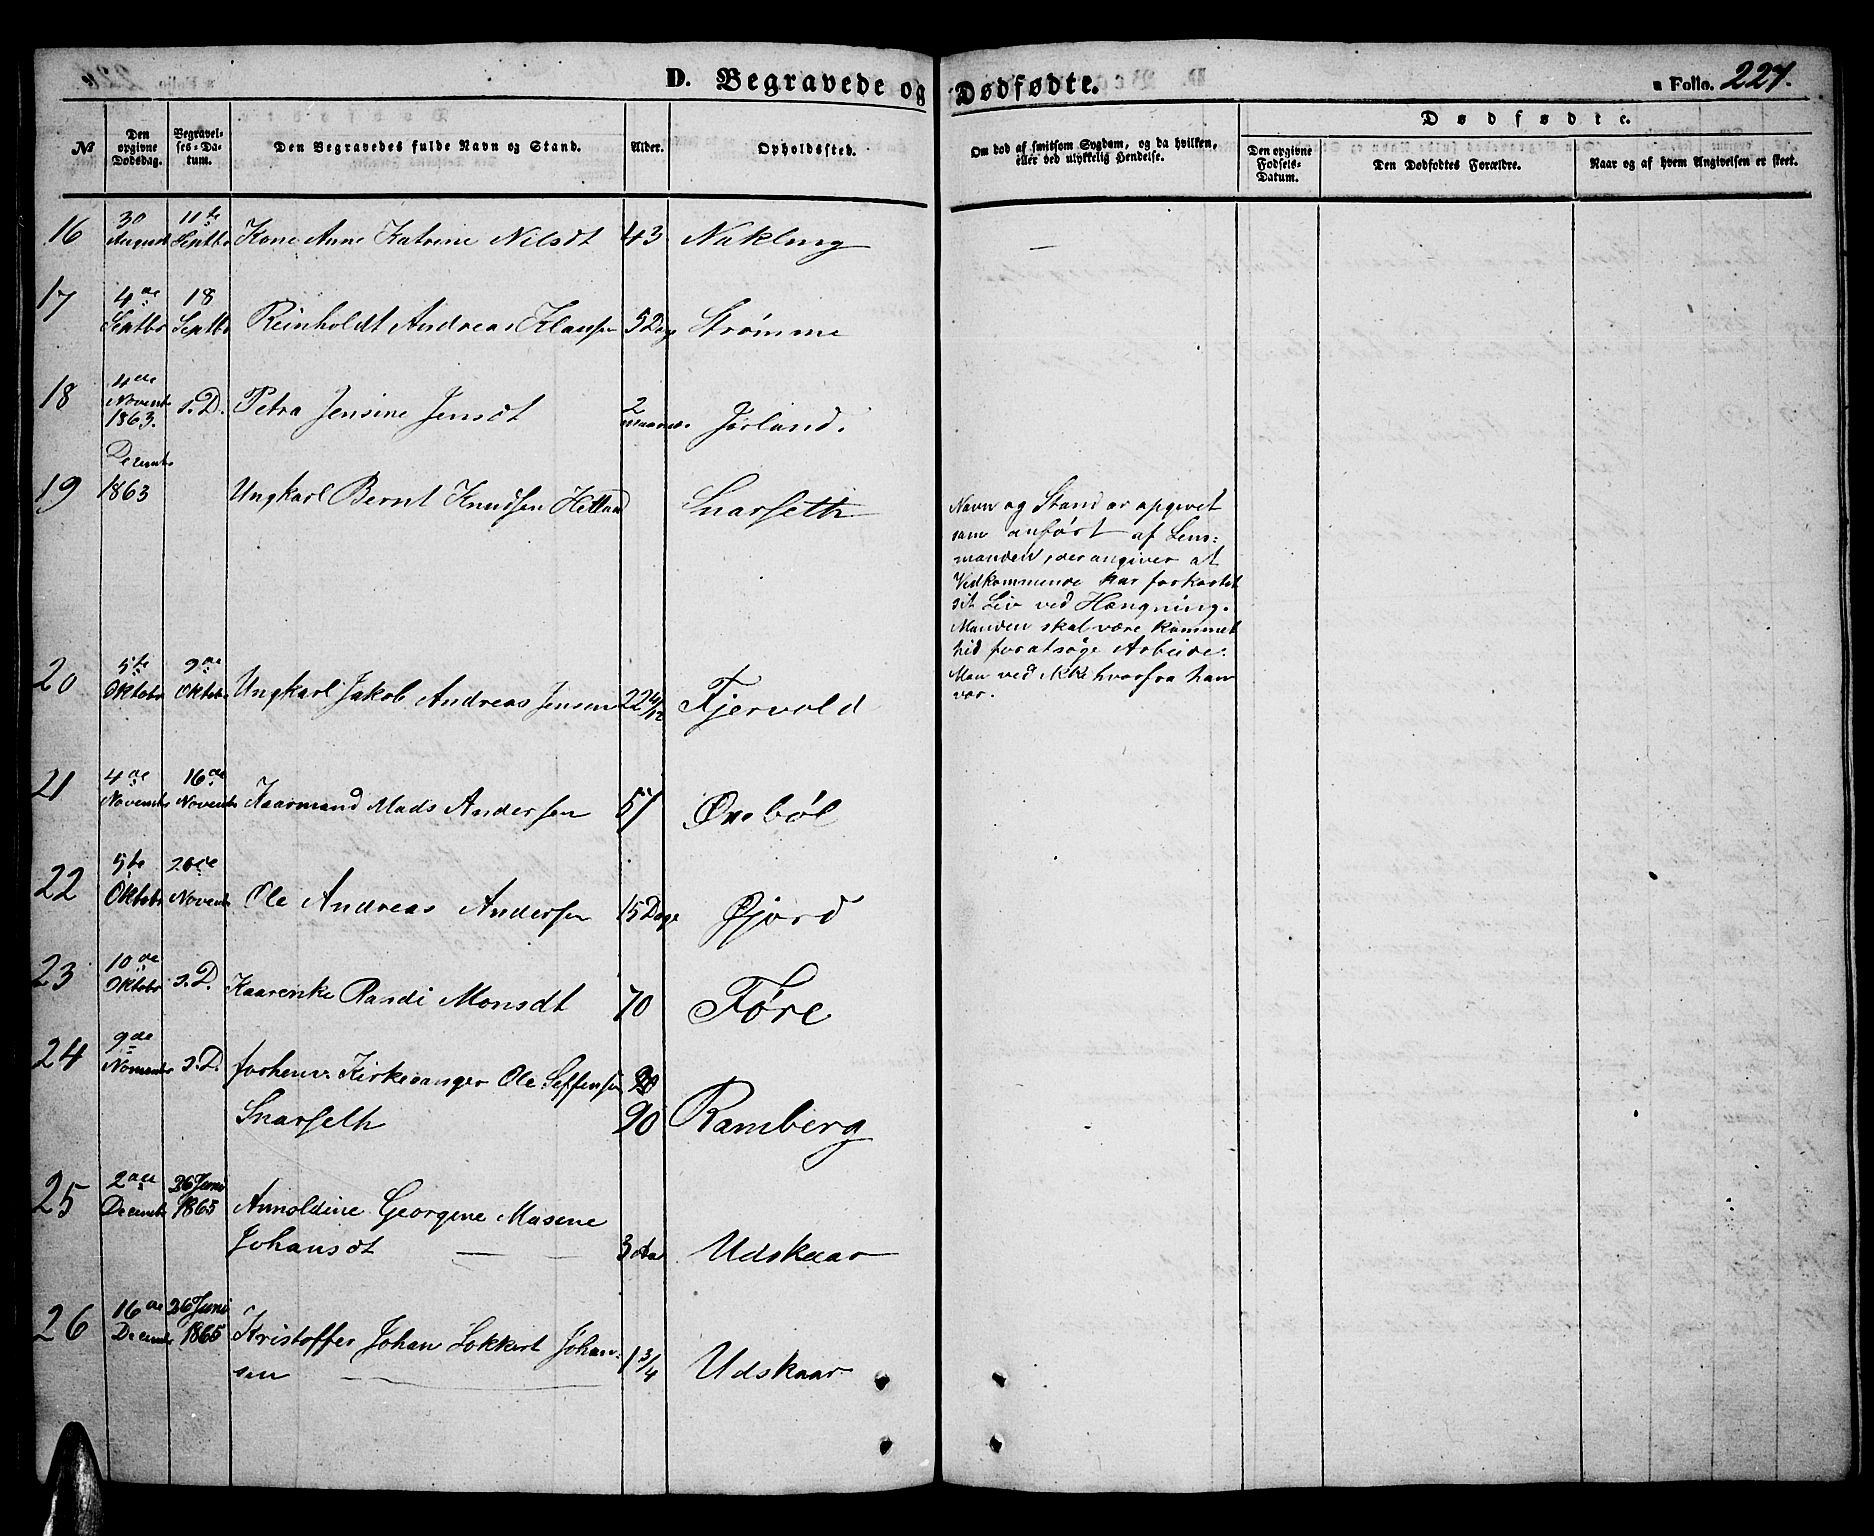 D. Begravede og Dødfødte.
Folio. 227.
Dødfødte.
No
Den opgivne Dødsdag.
Begravelses-Datum.
Den Begravedes fulde Navn og Stand.
Alder.
Opholdssted.
Om død af smitsom Sygdom, og da hvilken, eller ved ulykkelig Hendelse.
Den opgivne Fødsels-Datum.
Den Dødfødtes Forældre.
Naar og af hvem Angivelsen er skeet.
16 30 August 11te Septbr Kone Anne Katrine Nilsdt 43 Nakling —
17 4de Septbr 18 Septbr Reinholdt Andreas Klausen 5 Dage Strømme
18 4de Novembr 1863. s. D. Petra Jensine Jensdt 2 maaned Jørland.
19 Decembr 1863 Ungkarl Bernt Knudsen Hetland Snarseth
Navn og Stand er opgivet
som anført af Lens-
manden, der angiver at
Vedkommende har forkortet
sit Liv ved Hængning.
Manden skal være kommet
hid for at søge Arbeide.
Man ved ikke hvorfra han
var.
20 5te Oktobr 9de Oktobr Ungkarl Jakob Andreas Jensen 22 4/12 Fjervold
21 4de Novembr 16de Novembr Kaarmand Mads Andersen 57 Ørebøl
22 5te Oktobr 20de Novembr Ole Andreas Andersen 15 Dage Øjord
23 10de Oktobr s. D. Kaarenke Randi Monsdt 70 Føre
24 9de Novembr s. D. forhenv. Kirkesanger Ole Steffensen
Snarseth 90 Ramberg
25 2den Decembr 26 Juni 1865 Arnoldine Georgine Masene
Johansdt — — 3 Aar Udskaar
26 16de Decembr 26 Juni 1865 Kristoffer Johan Lokkert Johan-
sen 1 3/4 Udskaar